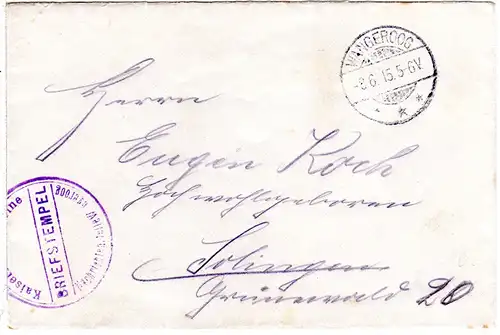 WANGEROOG
-8.6.15.5-6V.
* * *
Herrn
Eugen Koch
Hochwohlgeboren
Solingen
Grünewald 20
Kaiser ine
BRIEFSTEMPEL